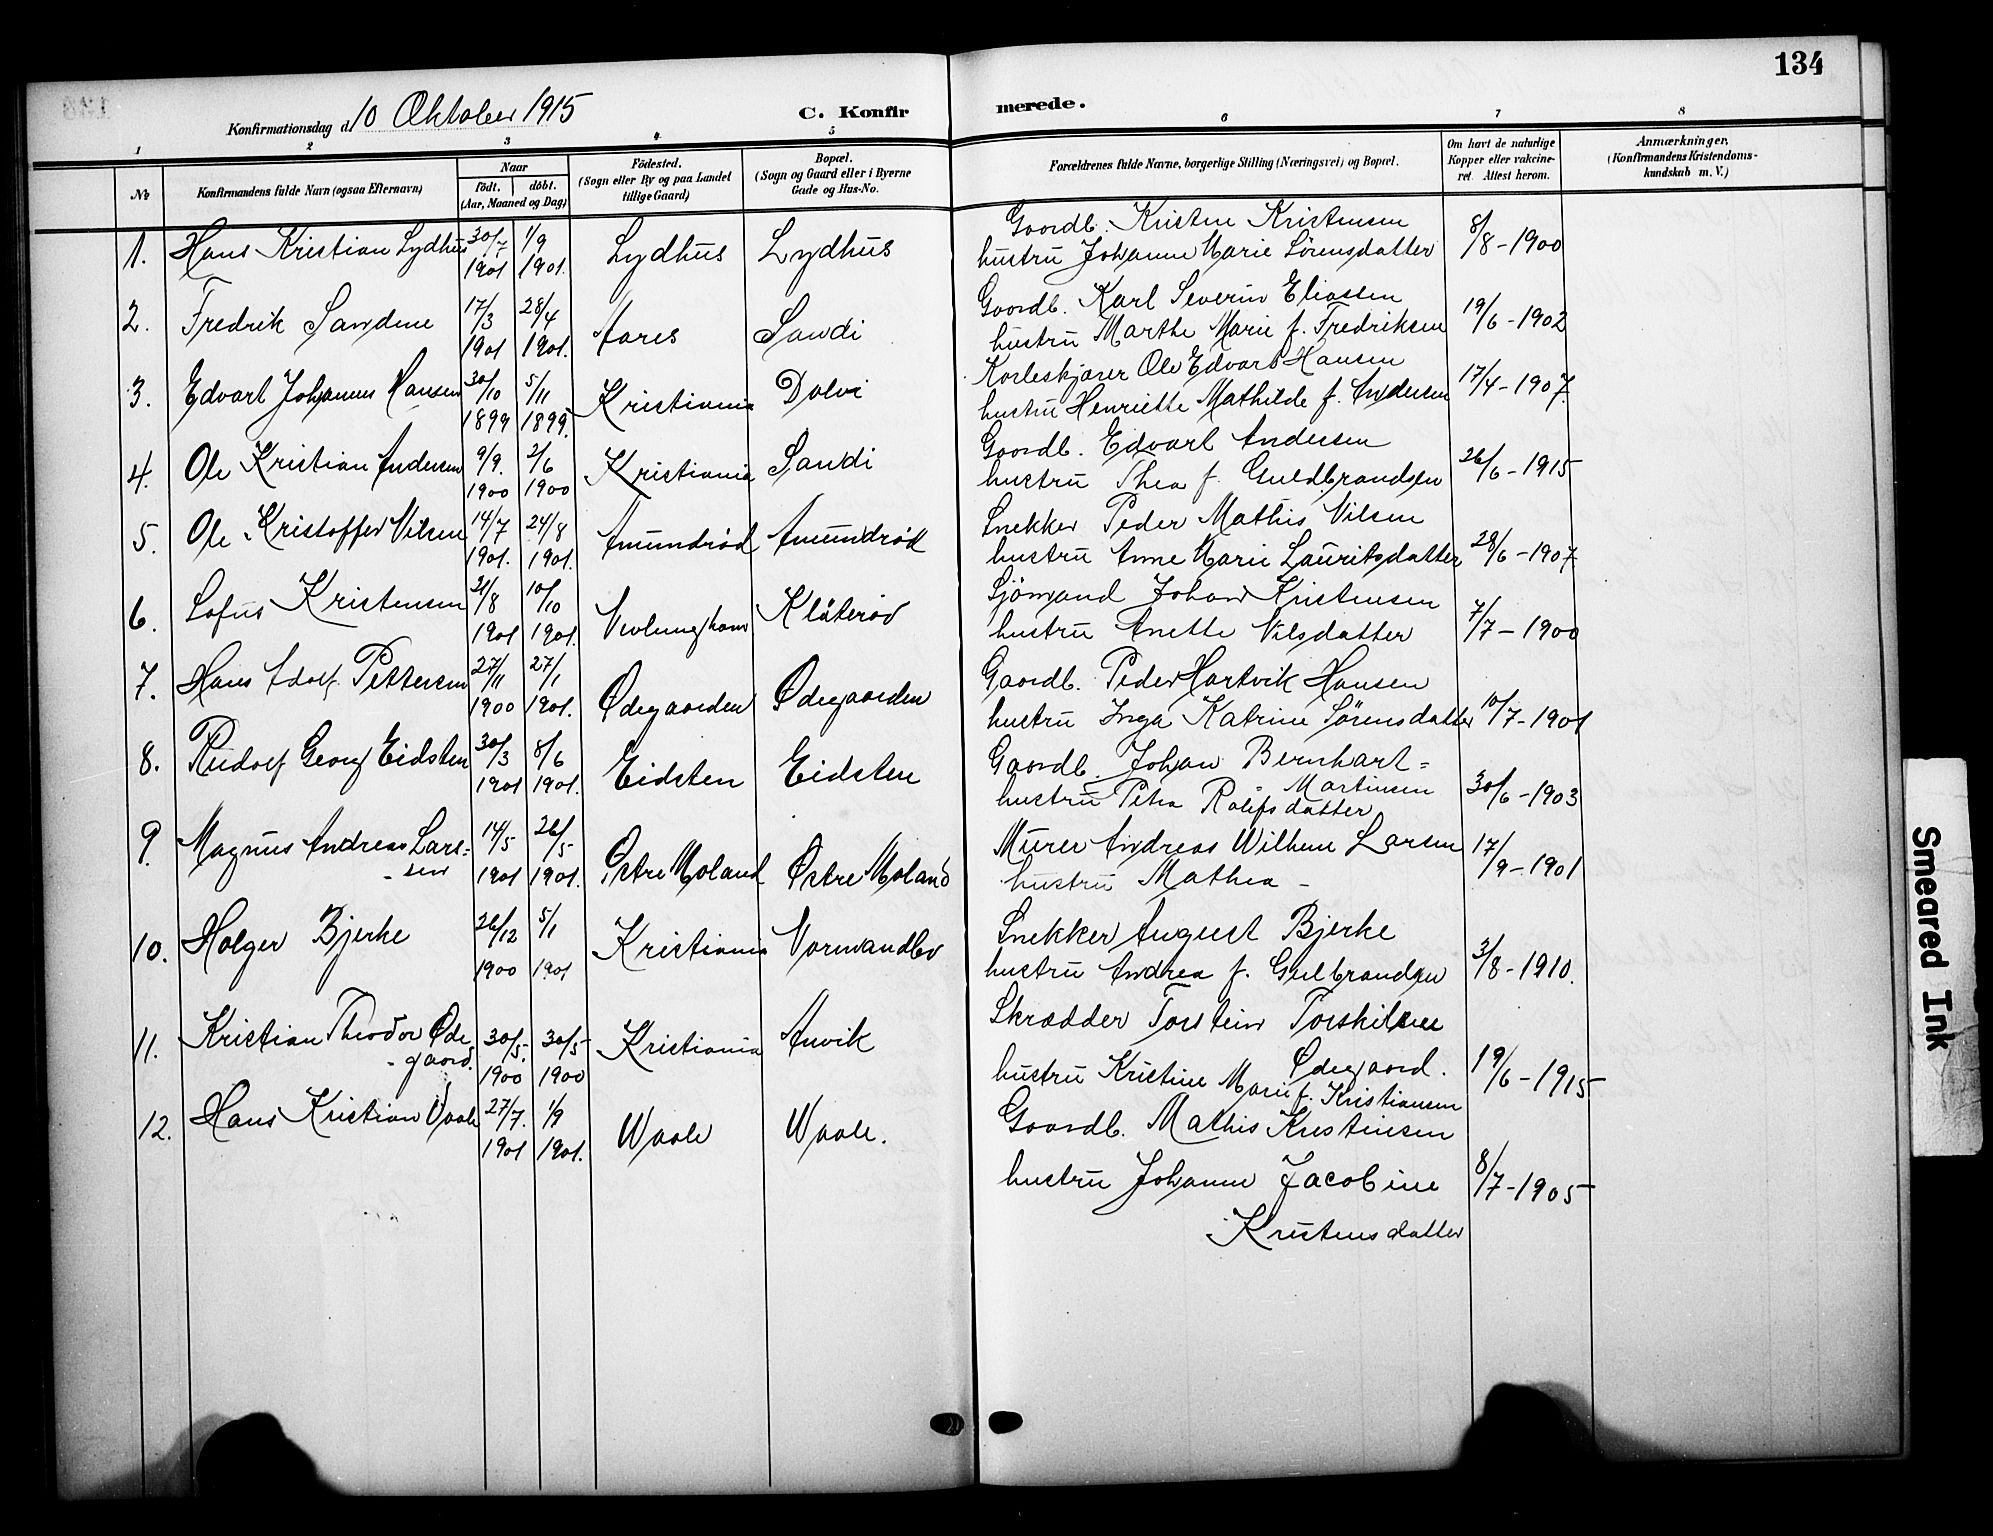 134
Konfirmationsdag d. 10 Oktober 1915
C. Konfirmerede.
1 2 3 4 5 6 7 8
No
Konfirmandens fulde Navn (ogsaa Efternavn)
Naar
födt. döbt.
(Aar, Maaned og Dag)
Födested.
(Sogn eller By og paa Landet
tillige Gaard)
Bopæl.
(Sogn og Gaard eller i Byerne
Gade og Hus-No.
Forældrenes fulde Navne, borgerlige Stilling (Næringsvei) og Bopæl.
Om havt de naturlige
Kopper eller vakcine-
ret. Attest herom.
Anmærkninger.
(Konfirmandens Kristendoms-
kundskab m. V.)
1. Hans Kristian Lydhus 30/7 1901 1/9 1901. Lydhus Lydhus
Gaardb. Kristen Kristensen
hustru Johanne Marie Sørensdatter 8/8-1900
2. Fredrik Sandene 17/3 1901 28/4 1901. Aares Sandi
Gaardb. Karl Severin Eliassen
hustru Marthe Marie f. Fredriksen 19/6-1902
3. Edvart Johannes Hansen 30/10 1899 5/11 1899. Kristiania Dolvi
Ole Edvart Hansen
hustru Henriette Mathilde f. Andersen 17/4-1907.
4. Ole Kristian Andersen 9/9. 1900 2/6 1900 Kristiania Sandi
Gaardb. Edvart Andersen
hustru Thea f. Guldbrandsen 26/6-1915
5. Ole Kristoffer Nilsen 14/7 1901. 24/8 1901. Amundrød Amundrød
Snekker Peder Mathis Nilsen
hustru Anne Marie Lauritsdatter 28/6-1907
6. Sofus Kristensen 21/8 1901 10/10 1901. Nevlunghavn Klåterød
Sjömand Johan Kristensen
hustru Anette Nilsdatter 7/7-1900
7. Hans Adolf Pettersen 27/11 1900 27/1 1901. Ødegaarden Ødegaarden
Gaardb. Peder Hartvik Hansen
hustru Inga Katrine Sørensdatter 10/7-1901
8. Rudolf Georg Eidsten 30/3 1901 8/6 1901. Eidsten Eidsten
Gaardb. Johan Bernhart=
- Martinsen
hustru Petra Rolifsdatter 30/6-1903
9. Magnus Andreas Lars=
-sen 14/5 1901 26/5 1901. Østre Moland Østre Moland
Murer Andreas Wilhem Larsen
hustru Mathea - 17/9-1901
10. Holger Bjerke 26/12 1900 5/1 1901 Kristiania
Snekker August Bjerke
hustru Andrea f. Gulbrandsen 3/8-1910.
11. Kristian Theodor Øde
-gaard. 30/5. 1900 30/5 1900 Kristiania Anvik
Skrædder Torstein Torskilsen
Ødegaard.
hustru Kristine Marie f. Kristiansen 19/6-1915
12. Hans Kristian Vaale 27/7. 1901 1/9 1901. Waale Waale.
Gaardb. Mathis Kristensen
hustru Johanne Jacobine 8/7-1905
Kristensdatter
Smeared Ink